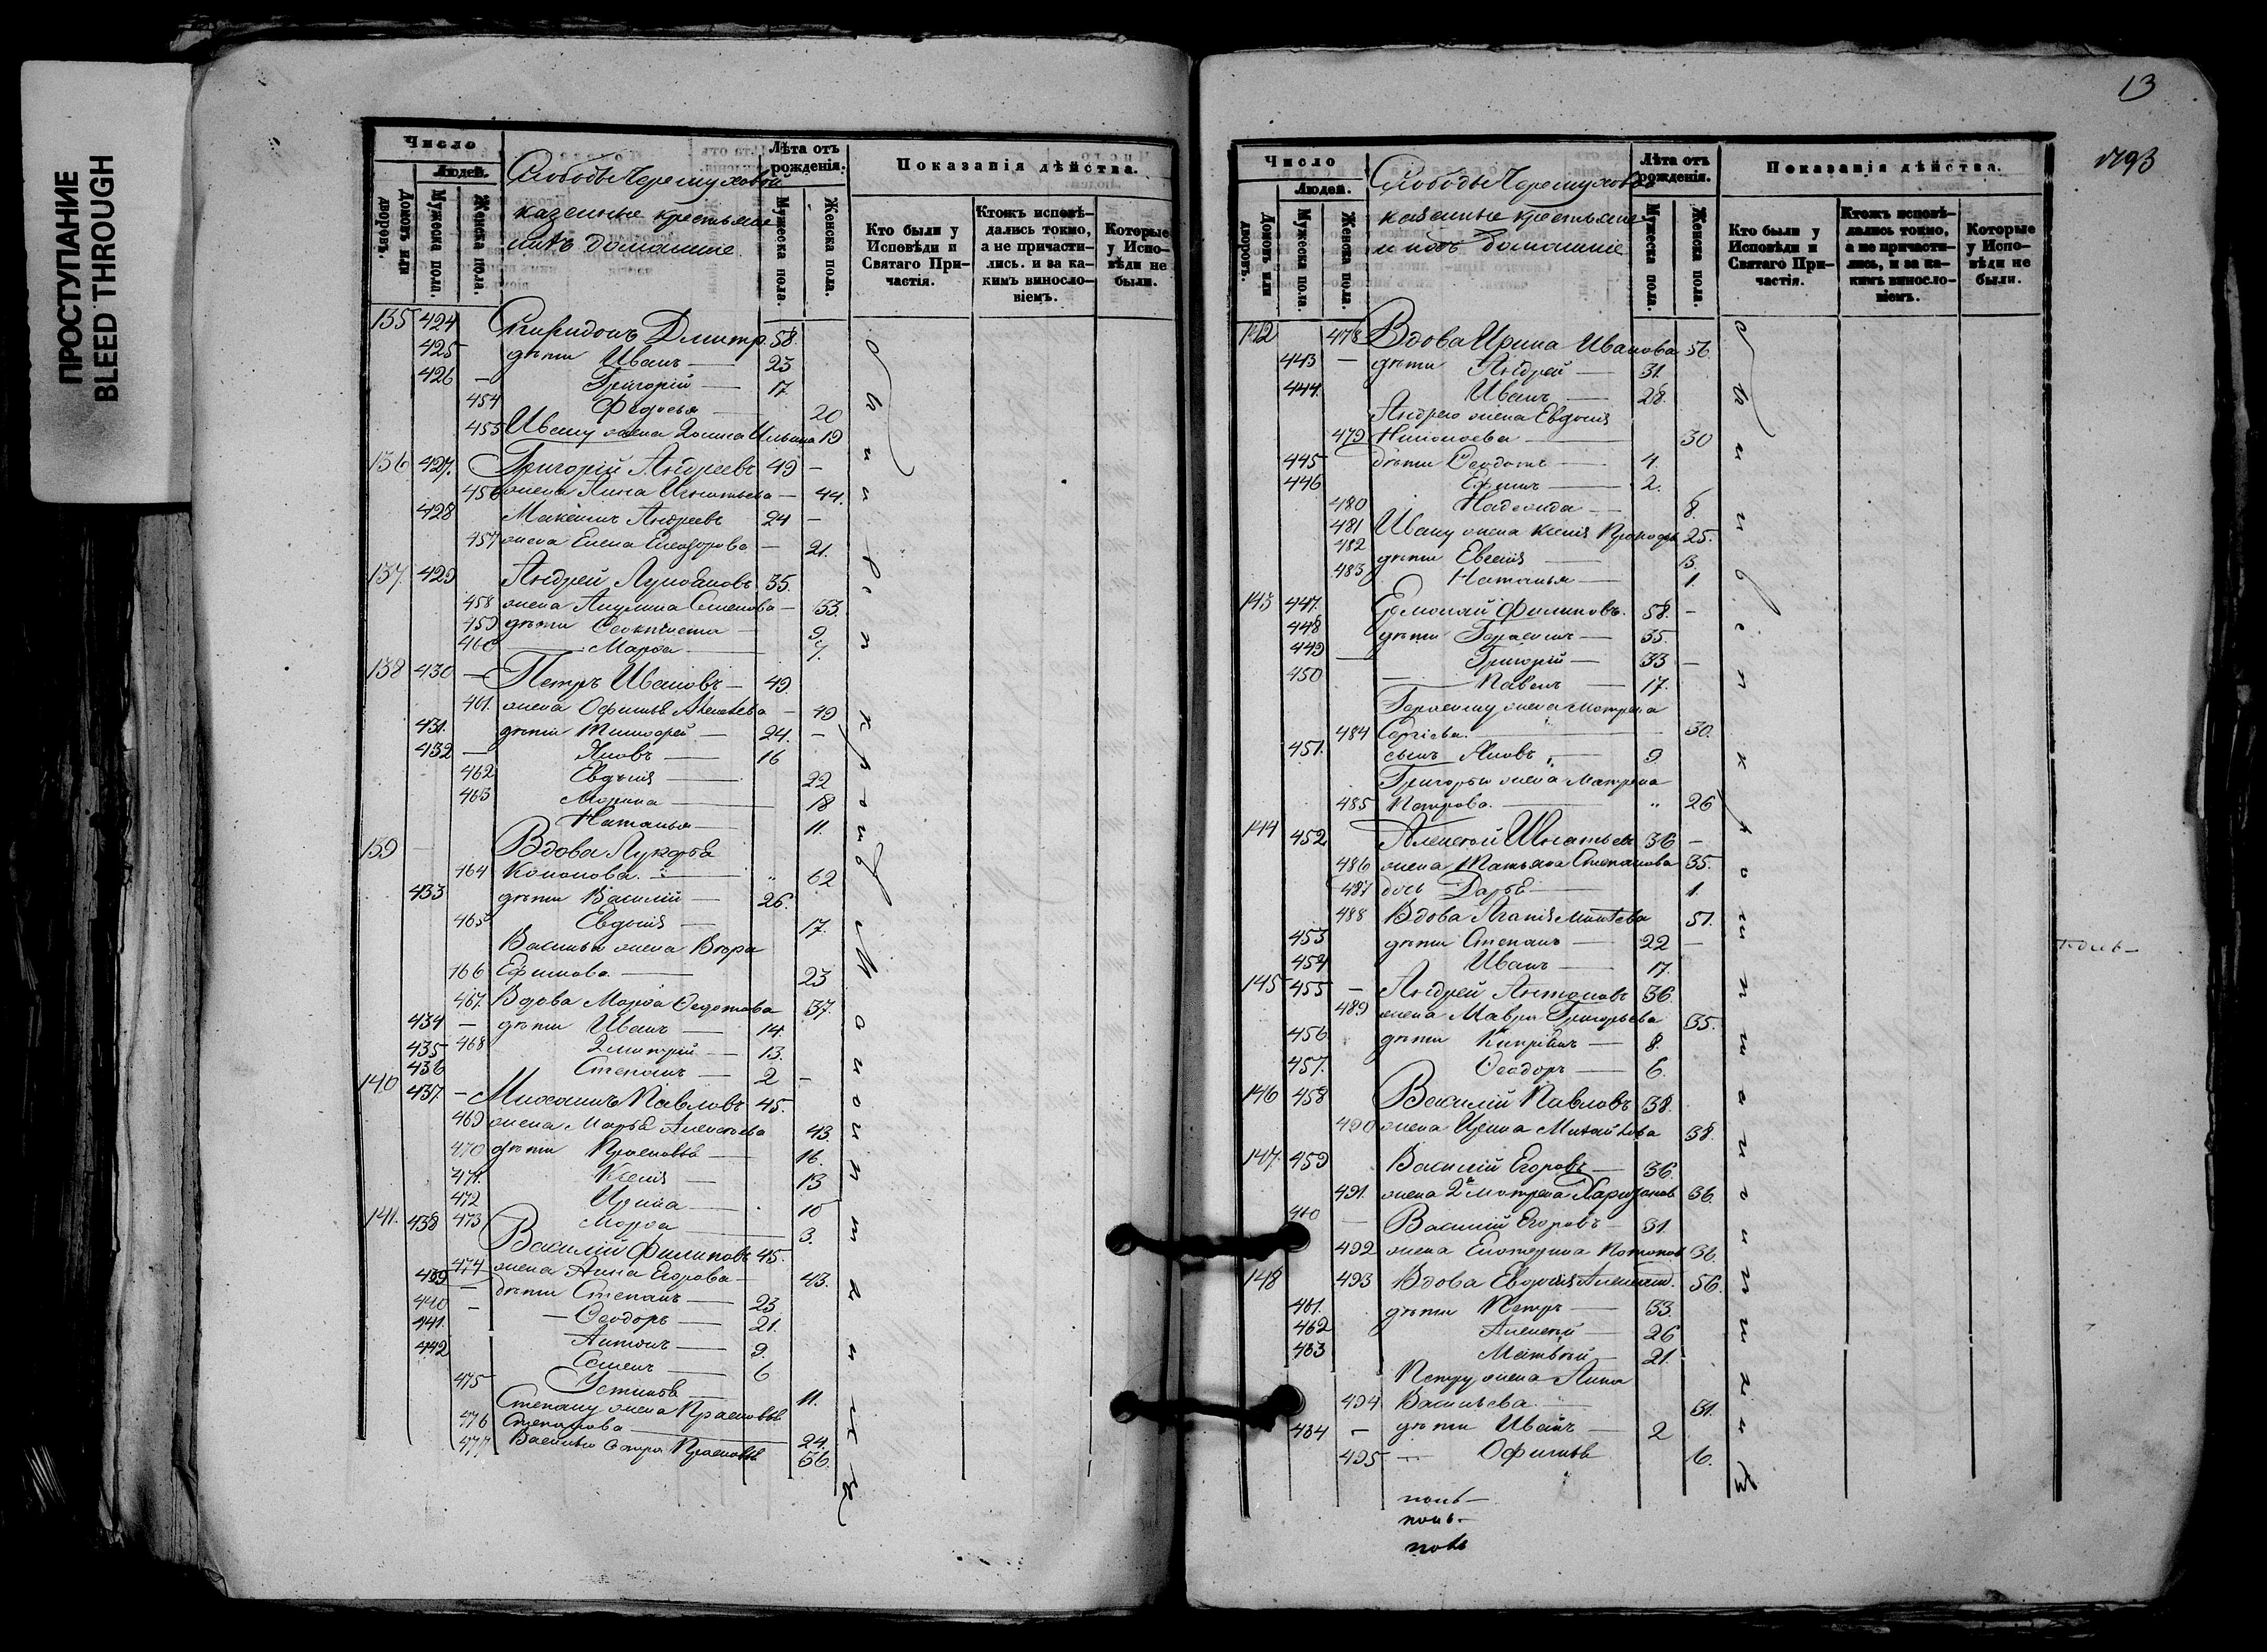 ПРОСТУПАНИЕ
BLEED THROUGH
Число
Людей.
Домовъ или дворовъ.
Мужеска пола.
Женска пола.
Слободы Черемуховой
казенные крестьяне
и ихъ домашние
Лѣта отъ рожденія.
Мужеска пола.
Женска пола.
Показанія дѣйства.
Кто были у Исповѣди и Святаго Причастія.
Ктожъ исповѣдались токмо, а не причастились. и за какимъ винословіемъ.
Которые у Исповѣди не были.
135 424 Спиридонъ Дмитр. 58.
425 дѣти Иванъ 23
426 Григорій 17
454 Федосья 20
455 Ивану жена Ильина 19
136 427. Григорій Андреевъ 49
456 жена Анна Игнатьева 44.
428 Максимъ Андреевъ 24
457 жена Елена 21.
137. 429 Андрей 35.
458 жена Акулина Семенова 33.
459 дѣти Ѳеоктиста 9.
460 Марѳа 7.
138 430 Петръ Ивановъ 49.
461. жена Офимья 49
431. дѣти Тимофей 24.
432 Яковъ 16
462 Евдокія 22
463 Марина 18
Наталья 11.
139 Вдова Лукерья
464 Кононова. 62
433 дѣти Василій 26.
465 Евдокія 17.
Василья жена Вѣра
466 Ефимова 23
467. Вдова Марѳа Ѳедотова 37.
434 дѣти Иванъ 14.
435 468 Дмитрій 13.
436 Степанъ 2
140 437 Михаилъ Павловъ 45.
469 жена Марья Алексѣева 43.
470 дѣти Прасковья 16.
471. Ксенія 13
472 Ирина 10
473 Марѳа 3.
141. 438 Василій Филиповъ 45.
474 жена Анна Егорова 43.
439 дѣти Степанъ 23
440 Ѳеодоръ 21.
441. Антонъ 9.
442 Семенъ 6
475 Устинья 11.
Степану жена Прасковья
476 Степанова 24.
477 Василью сестра Прасковья 56.
13
Число
Людей.
Домовъ или дворовъ.
Мужеска пола.
Женска пола.
Слободы Черемуховой
казенные крестьяне
и ихъ домашние
Лѣта отъ рожденія.
Мужеска пола.
Женска пола.
Показанія дѣйства.
Кто были у Исповѣди и Святаго Причастія.
Ктожъ исповѣдались токмо, а не причастились, и за какимъ винословіемъ.
Которые у Исповѣди не были.
142 478 Вдова Ирина Иванова 56.
443 дѣти Андрей 31.
444. Иванъ 28.
Андрею жена Евдокія
479 30
445 дѣти Ѳеодотъ 4.
446 Ефимъ 2.
480 8.
481 Ивану жена Ксенія 25.
482 дѣти Евгенія 3.
483 Наталья 1.
143 447. Ермолай Филиповъ. 58.
448 дѣти Герасимъ 35.
449 Григорій 33
450 Павелъ 17.
Герасиму жена Матрена
484 Сергіева. 30.
451. сынъ Яковъ 9
Григорью жена Матрена
485 Петрова. 26
144 452 Алексѣй Игнатьев 36
486 жена Татьяна Степанова 35.
487 дочь Дарья 1.
488 Вдова 51.
453 дѣти Степанъ 22
454 Иванъ 17.
145 455 Андрей Антоновъ 36.
489 жена Мавра Григорьева 35.
456 дѣти 8.
457. Ѳеодоръ 6.
146 458 Василій Павловъ 38.
490 жена Ирина Михайлова 38.
147. 459 Василій Егоровъ 36.
491. жена 2я Матрена 36.
460 Василій Егоровъ 31.
492 жена Екатерина 36.
148 493 Вдова Евдокія Алексѣев. 56.
461. дѣти Петръ 33.
462 Алексѣй 26
463 Матвѣй 21.
Петру жена Анна
494 Васильева. 31.
464 дѣти Иванъ 2
495 Офимья 6.